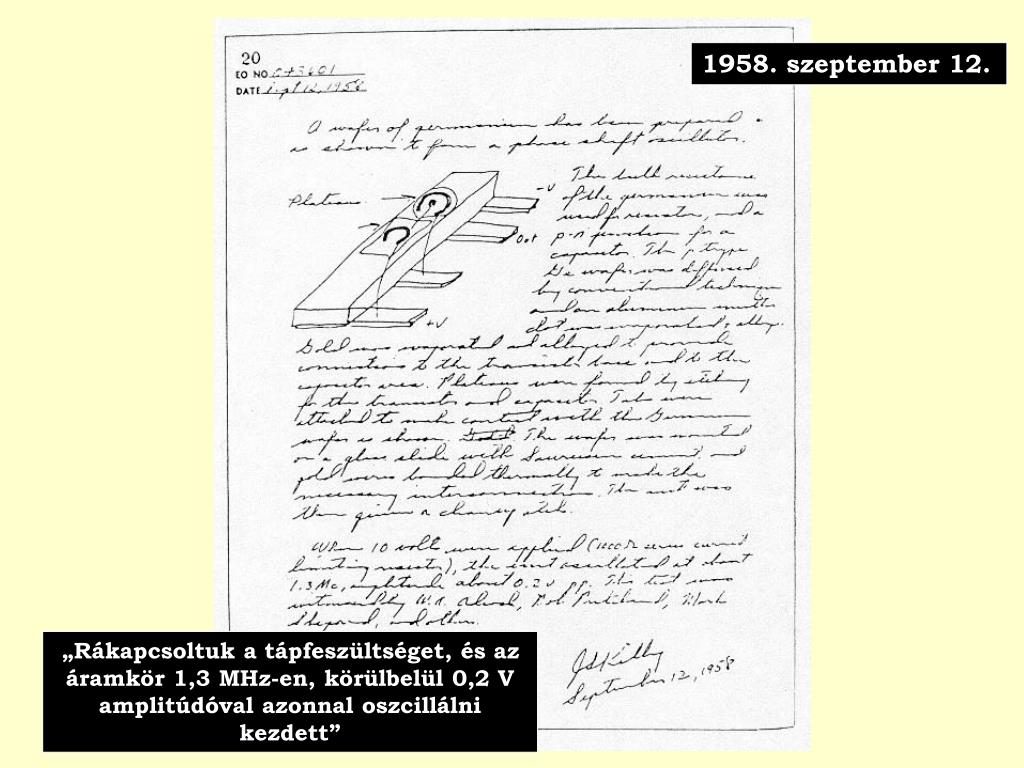 1958. szeptember 12.
20
EO NO C+3601
DATE Sept 12, 1958
A wafer of germanium has been prepared
as shown to form a phase shift oscillator.
Plateaus
-V
Out
+V
The bulk resistance
of the germanium was
used for resistor, and a
p-n junction for a
capacitor. The p type
Ge wafer was diffused
by conventional techniques
and an aluminum emitter
dot was evaporated & alloyed.
Gold was evaporated and alloyed to provide
connections to the transistor base and to the
capacitor area. Plateaus were formed by etching
for the transistor and capacitor. Tabs were
attached to make contact with the Germanium
wafer as shown. The wafer was mounted
on a glass slide with Sauereisen cement, and
gold wires bonded thermally to make the
necessary interconnections. The unit was
then given a cleanup etch.
When 10 volts were applied (1000 Ω series current
limiting resistor), the unit oscillated at about
1.3 Mc, amplitude about 0.2 v pp. This test was
witnessed by W.A. Adcock, Bob Pritchard, Mark
Shepard, and others.
JSKilby
September 12, 1958
„Rákapcsoltuk a tápfeszültséget, és az
áramkör 1,3 MHz-en, körülbelül 0,2 V
amplitúdóval azonnal oszcillálni
kezdett”